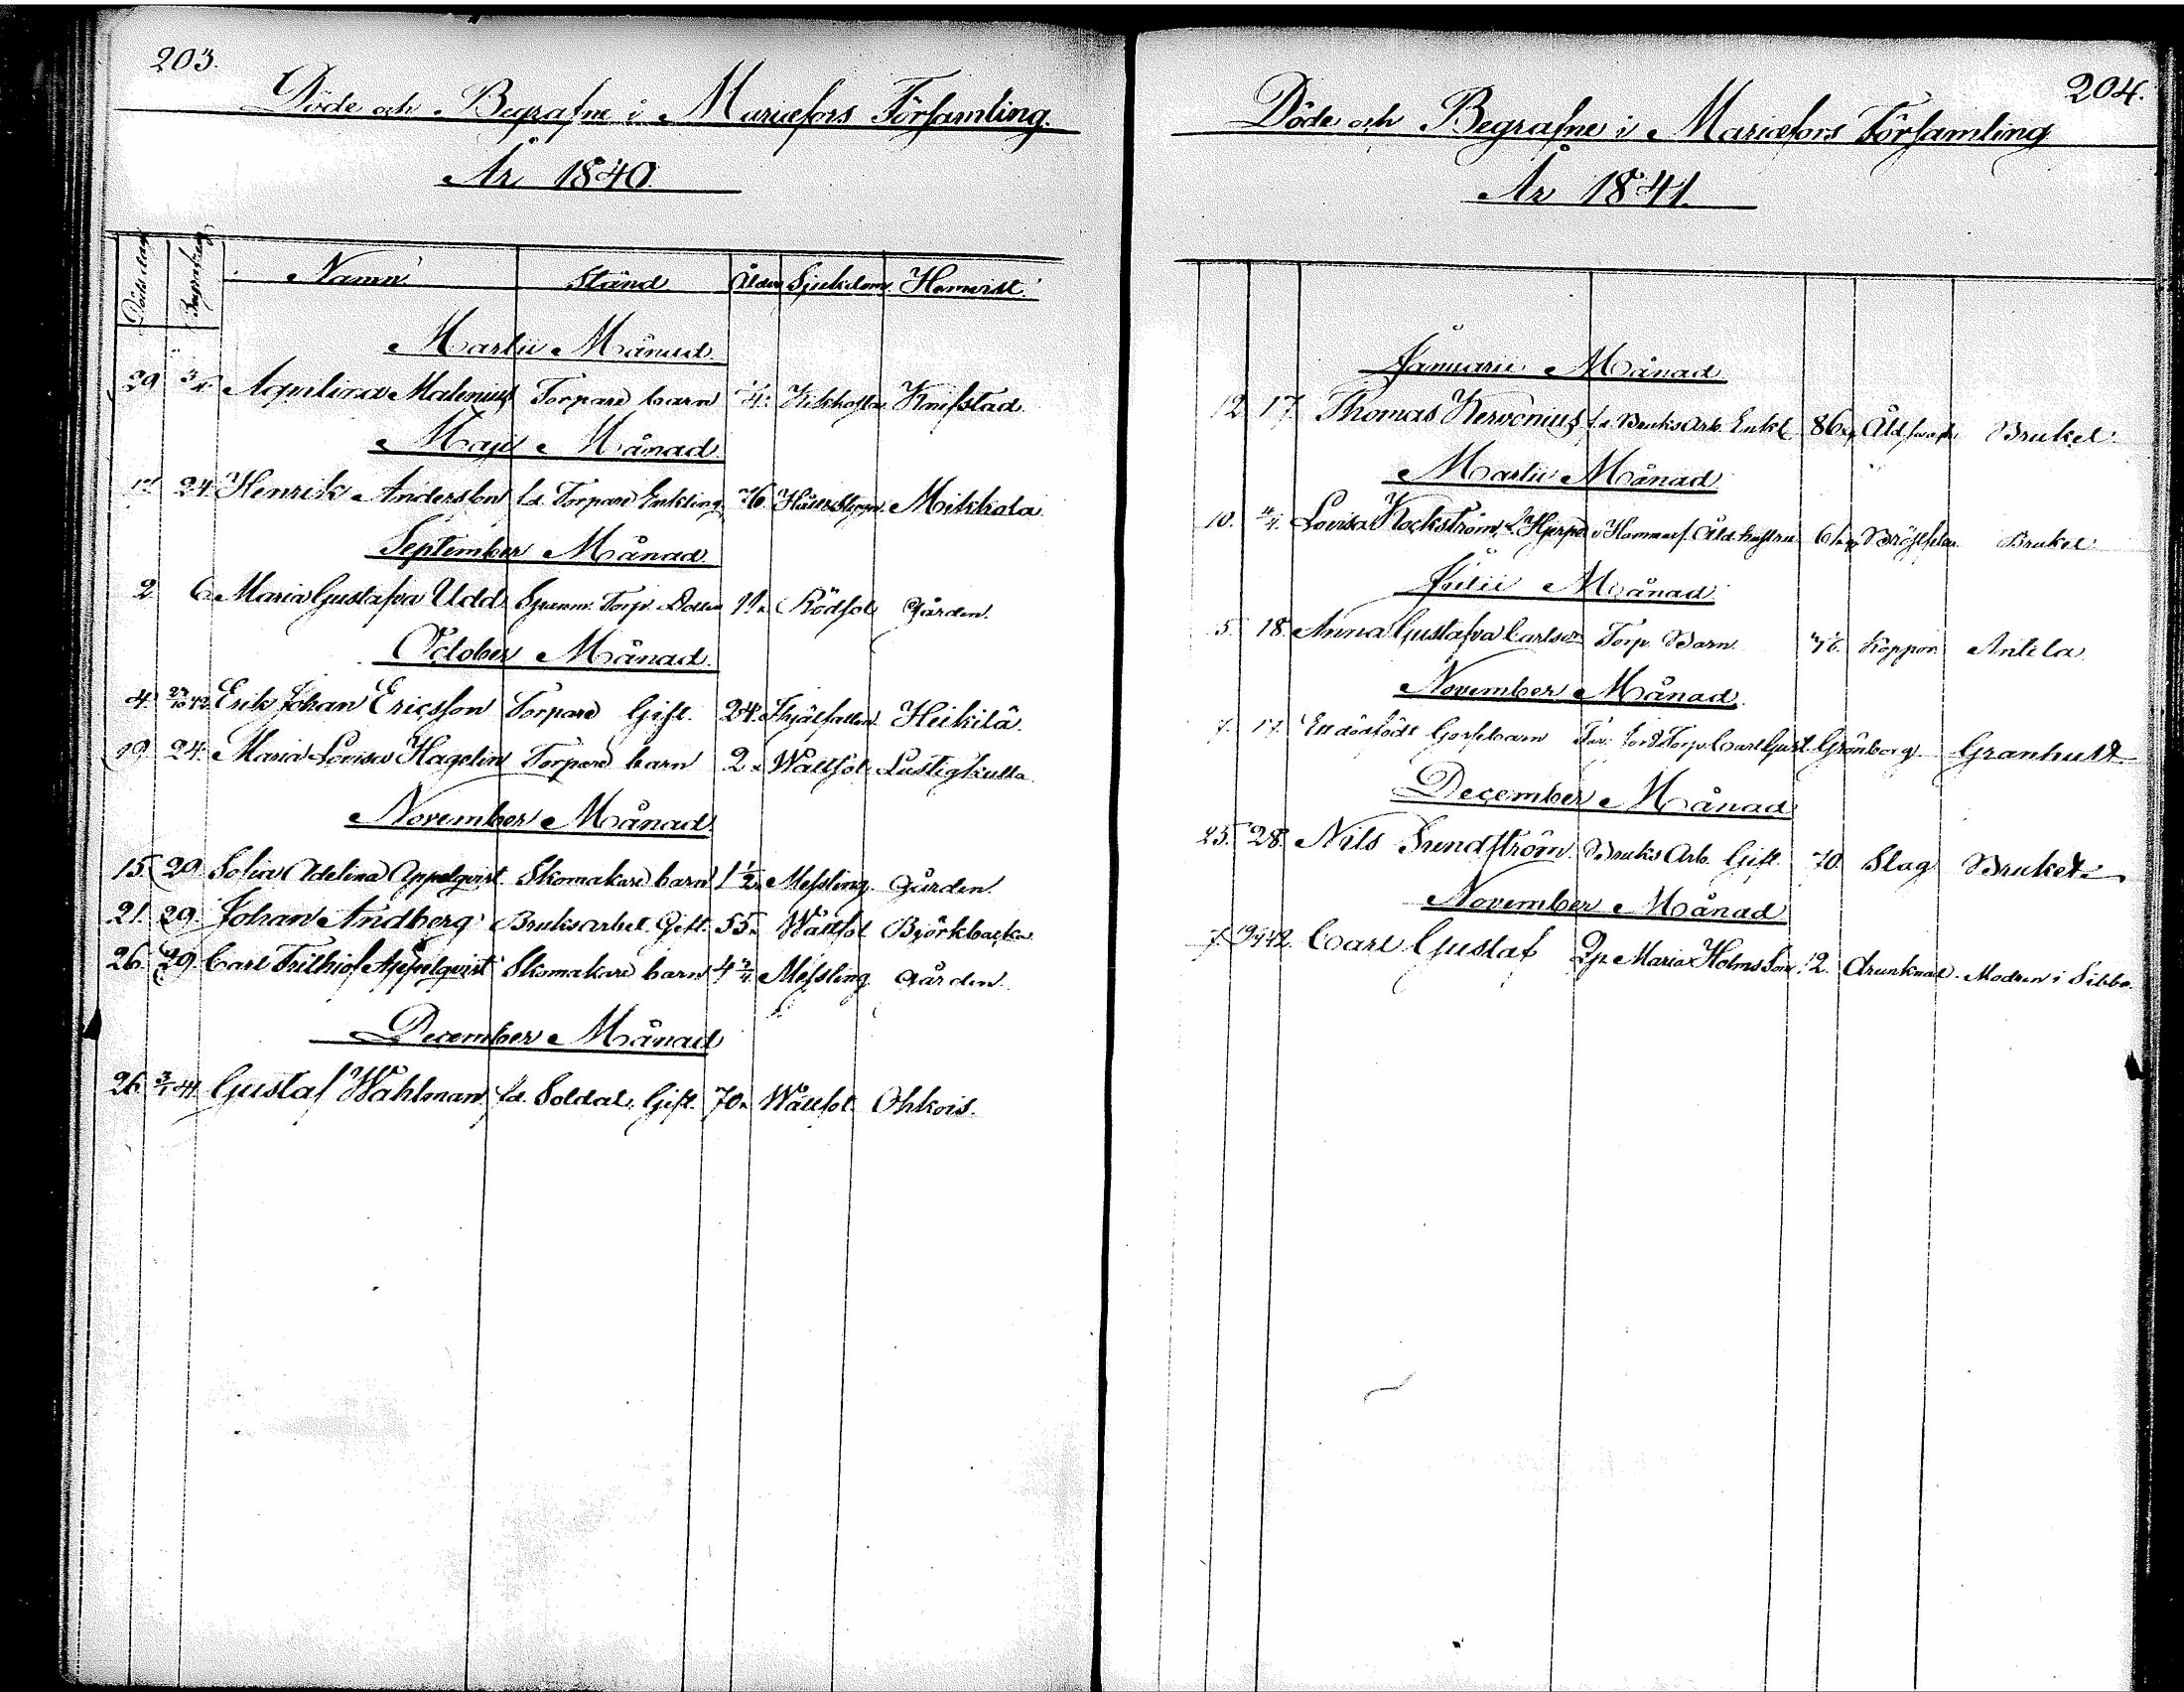 203.
Döde och Begrafne i Mariæfors Församling.
År 1840.
Döds dag Begrafning Namn Stånd Ålder Sjukdom Hemvist.
Martii Månad.
29 5/4. Aquilina Malenius Torpare barn Kikhosta Knifstad.
Maji Månad.
24. Henrik Andersson f.d. Torpare Enkling 76 Mikkola.
September Månad.
2 6. Maria Gustafva Udd Torp. Dotter 11. Rödsot Gården.
October Månad.
4. Erik Johan Ericsson Torpare Gift. 24. Ihjälfallen Heikilä.
19. 24. Maria Lovisa Hagelin Torpare barn 2. Wattsot. Lustigkulla.
November Månad.
15. 29. Sofia Adelina Appelqvist. Skomakare barn 1 1/2. Messling. Gården.
21. 29. Johan Andberg Bruksarbet. Gift. 55. Wattsot Björkbacka.
26. 29. Carl Frithiof Appelqvist Skomakare barn 4 Messling. Gården.
December Månad
26. 3/1 41. Gustaf Wahlman. f.d. Soldat. Gift. 70. Wattsot. Ohkois.
204.
Döde och Begrafne i Mariæfors Församling
År 1841.
Januarii Månad
12. 17. Thomas Nervonius f.d. Bruks Arb. Enkl. 86. Bruket.
Martii Månad
10. Lovisa Bruket.
Julii Månad.
5. 18. Anna Gustafva Carlsson Torp. Barn. Koppor. Antila.
November Månad.
7. 17. Ett dödfödt Gossebarn Torp. Carl Gust. Grönberg. Granhult.
December Månad
25. 28. Nils Sundström. Bruks Arb. Gift. 70. Slag Bruket.
November Månad
7. Carl Gustaf Maria Holms Son. 12. drunknad. Modren i Sibbo.